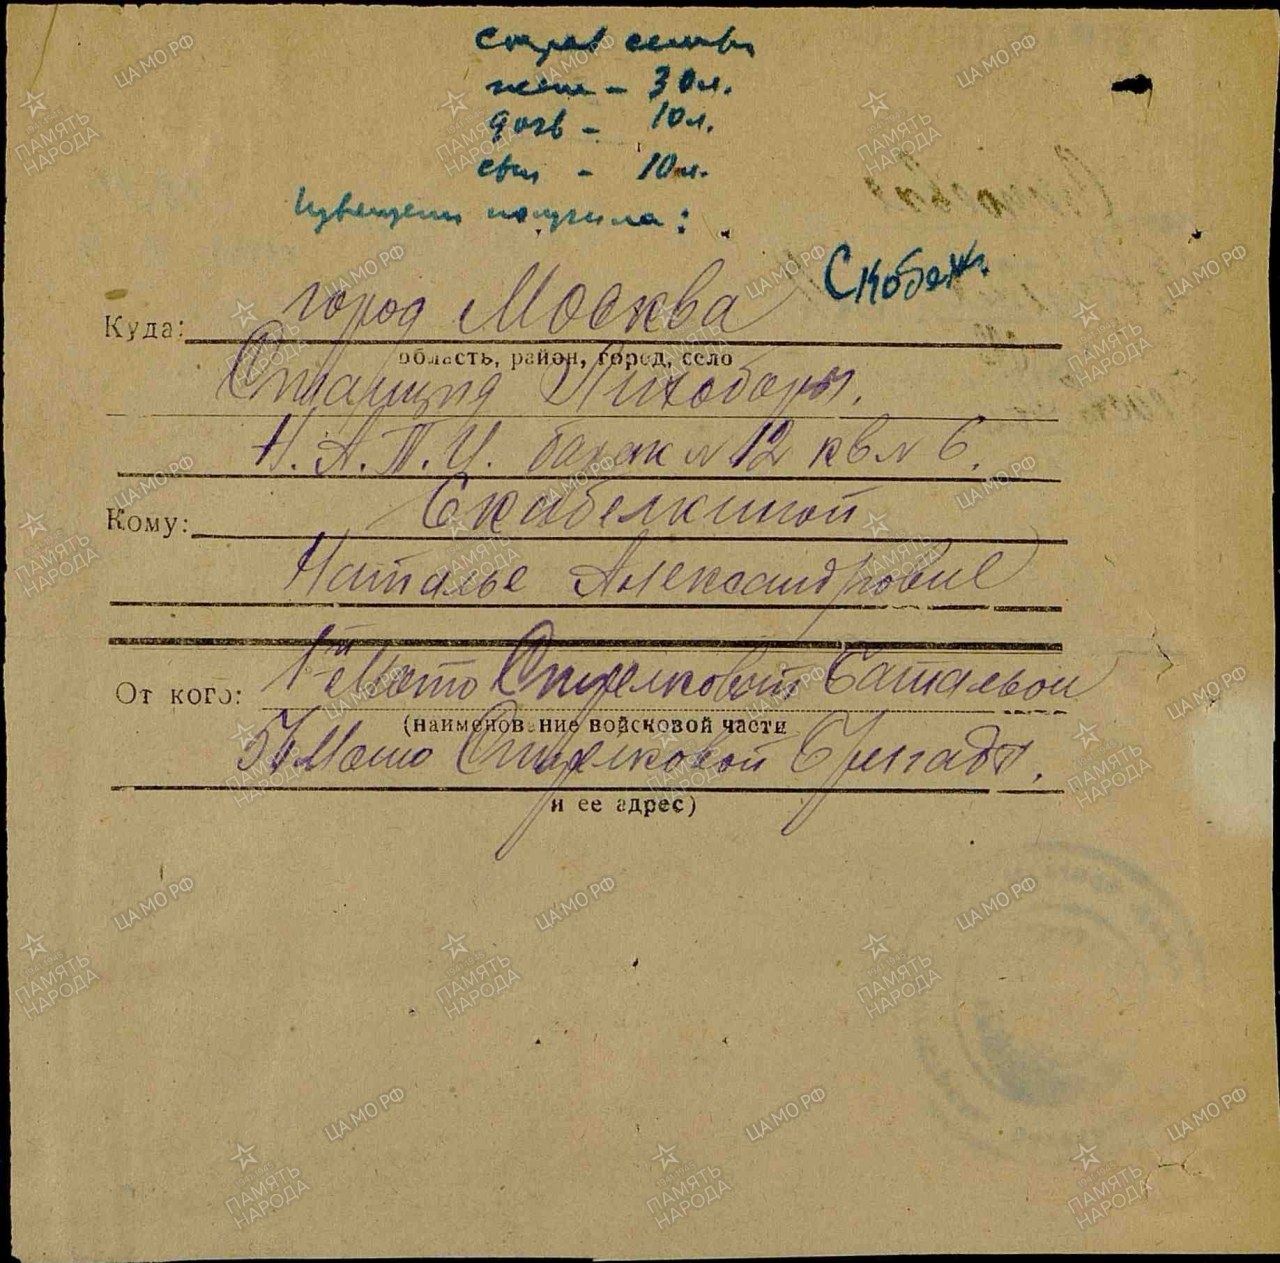 состав семьи
жена - 30 л.
дочь - 10 л.
сын - 10 л.
Извещение получила:
Скобелк.
Куда: город Москва
область, район, город, село
Станция Лихоборы.
Н.А.Т.И. барак № 12 кв № 6.
Кому: Скабелкиной
Наталье Александровне
От кого: 1й Мото Стрелковой Баталъон
(наименование войсковой части
Мото Стрелковой Бригады.
и ее адрес)